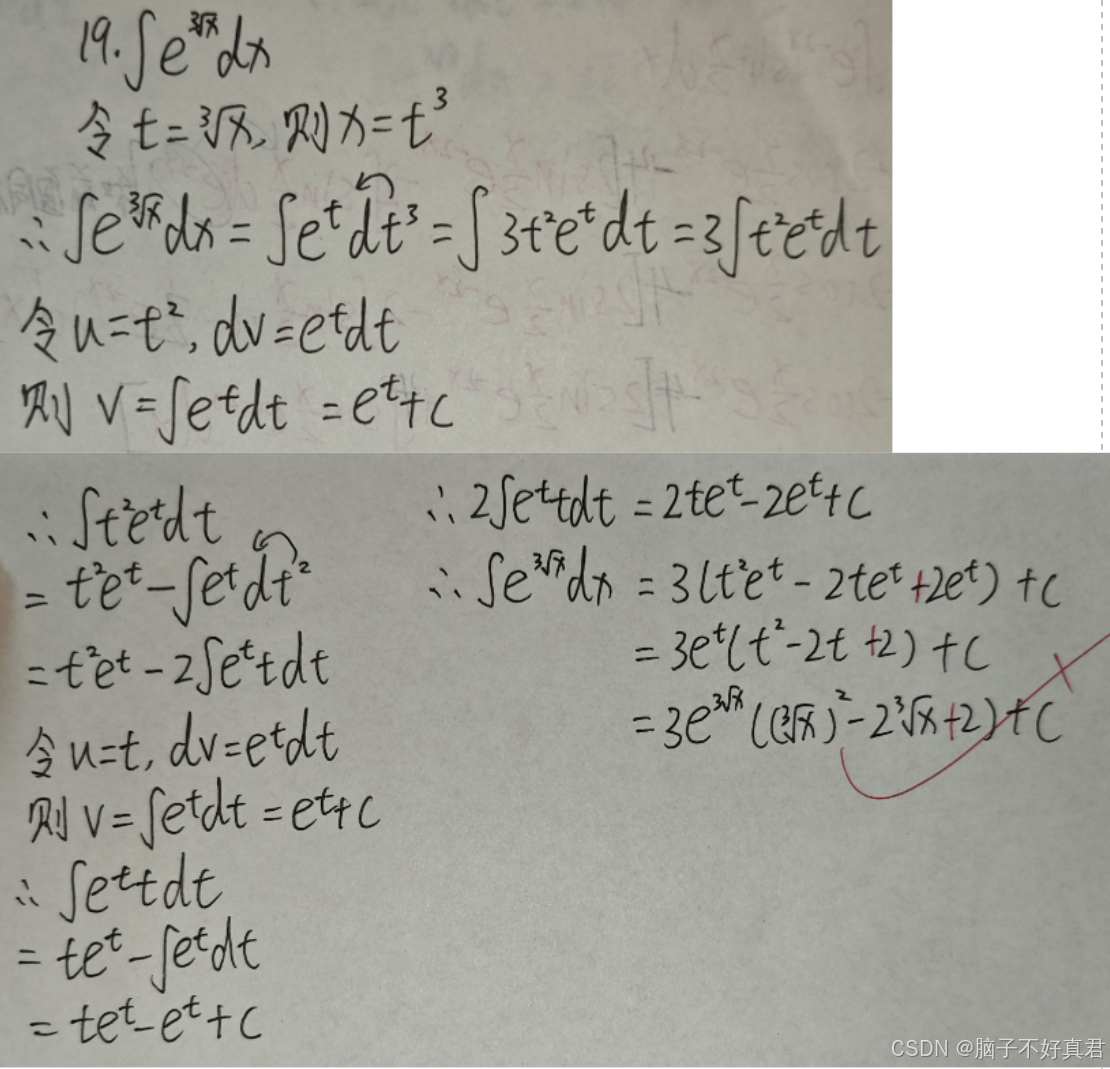 19.∫e^∛x dx
令 t=∛x, 则 x=t³
∴∫e^∛x dx=∫e^t dt³=∫3t²e^t dt=3∫t²e^t dt
令 u=t², dv=e^t dt
则 v=∫e^t dt=e^t+c
∴∫t²e^t dt
=t²e^t-∫e^t dt²
=t²e^t-2∫e^t t dt
令 u=t, dv=e^t dt
则 v=∫e^t dt=e^t+c
∴∫e^t t dt
=te^t-∫e^t dt
=te^t-e^t+c
∴2∫e^t t dt=2te^t-2e^t+c
∴∫e^∛x dx=3(t²e^t-2te^t+2e^t)+c
=3e^t(t²-2t+2)+c
=3e^∛x((∛x)²-2∛x+2)+c
CSDN @脑子不好真君